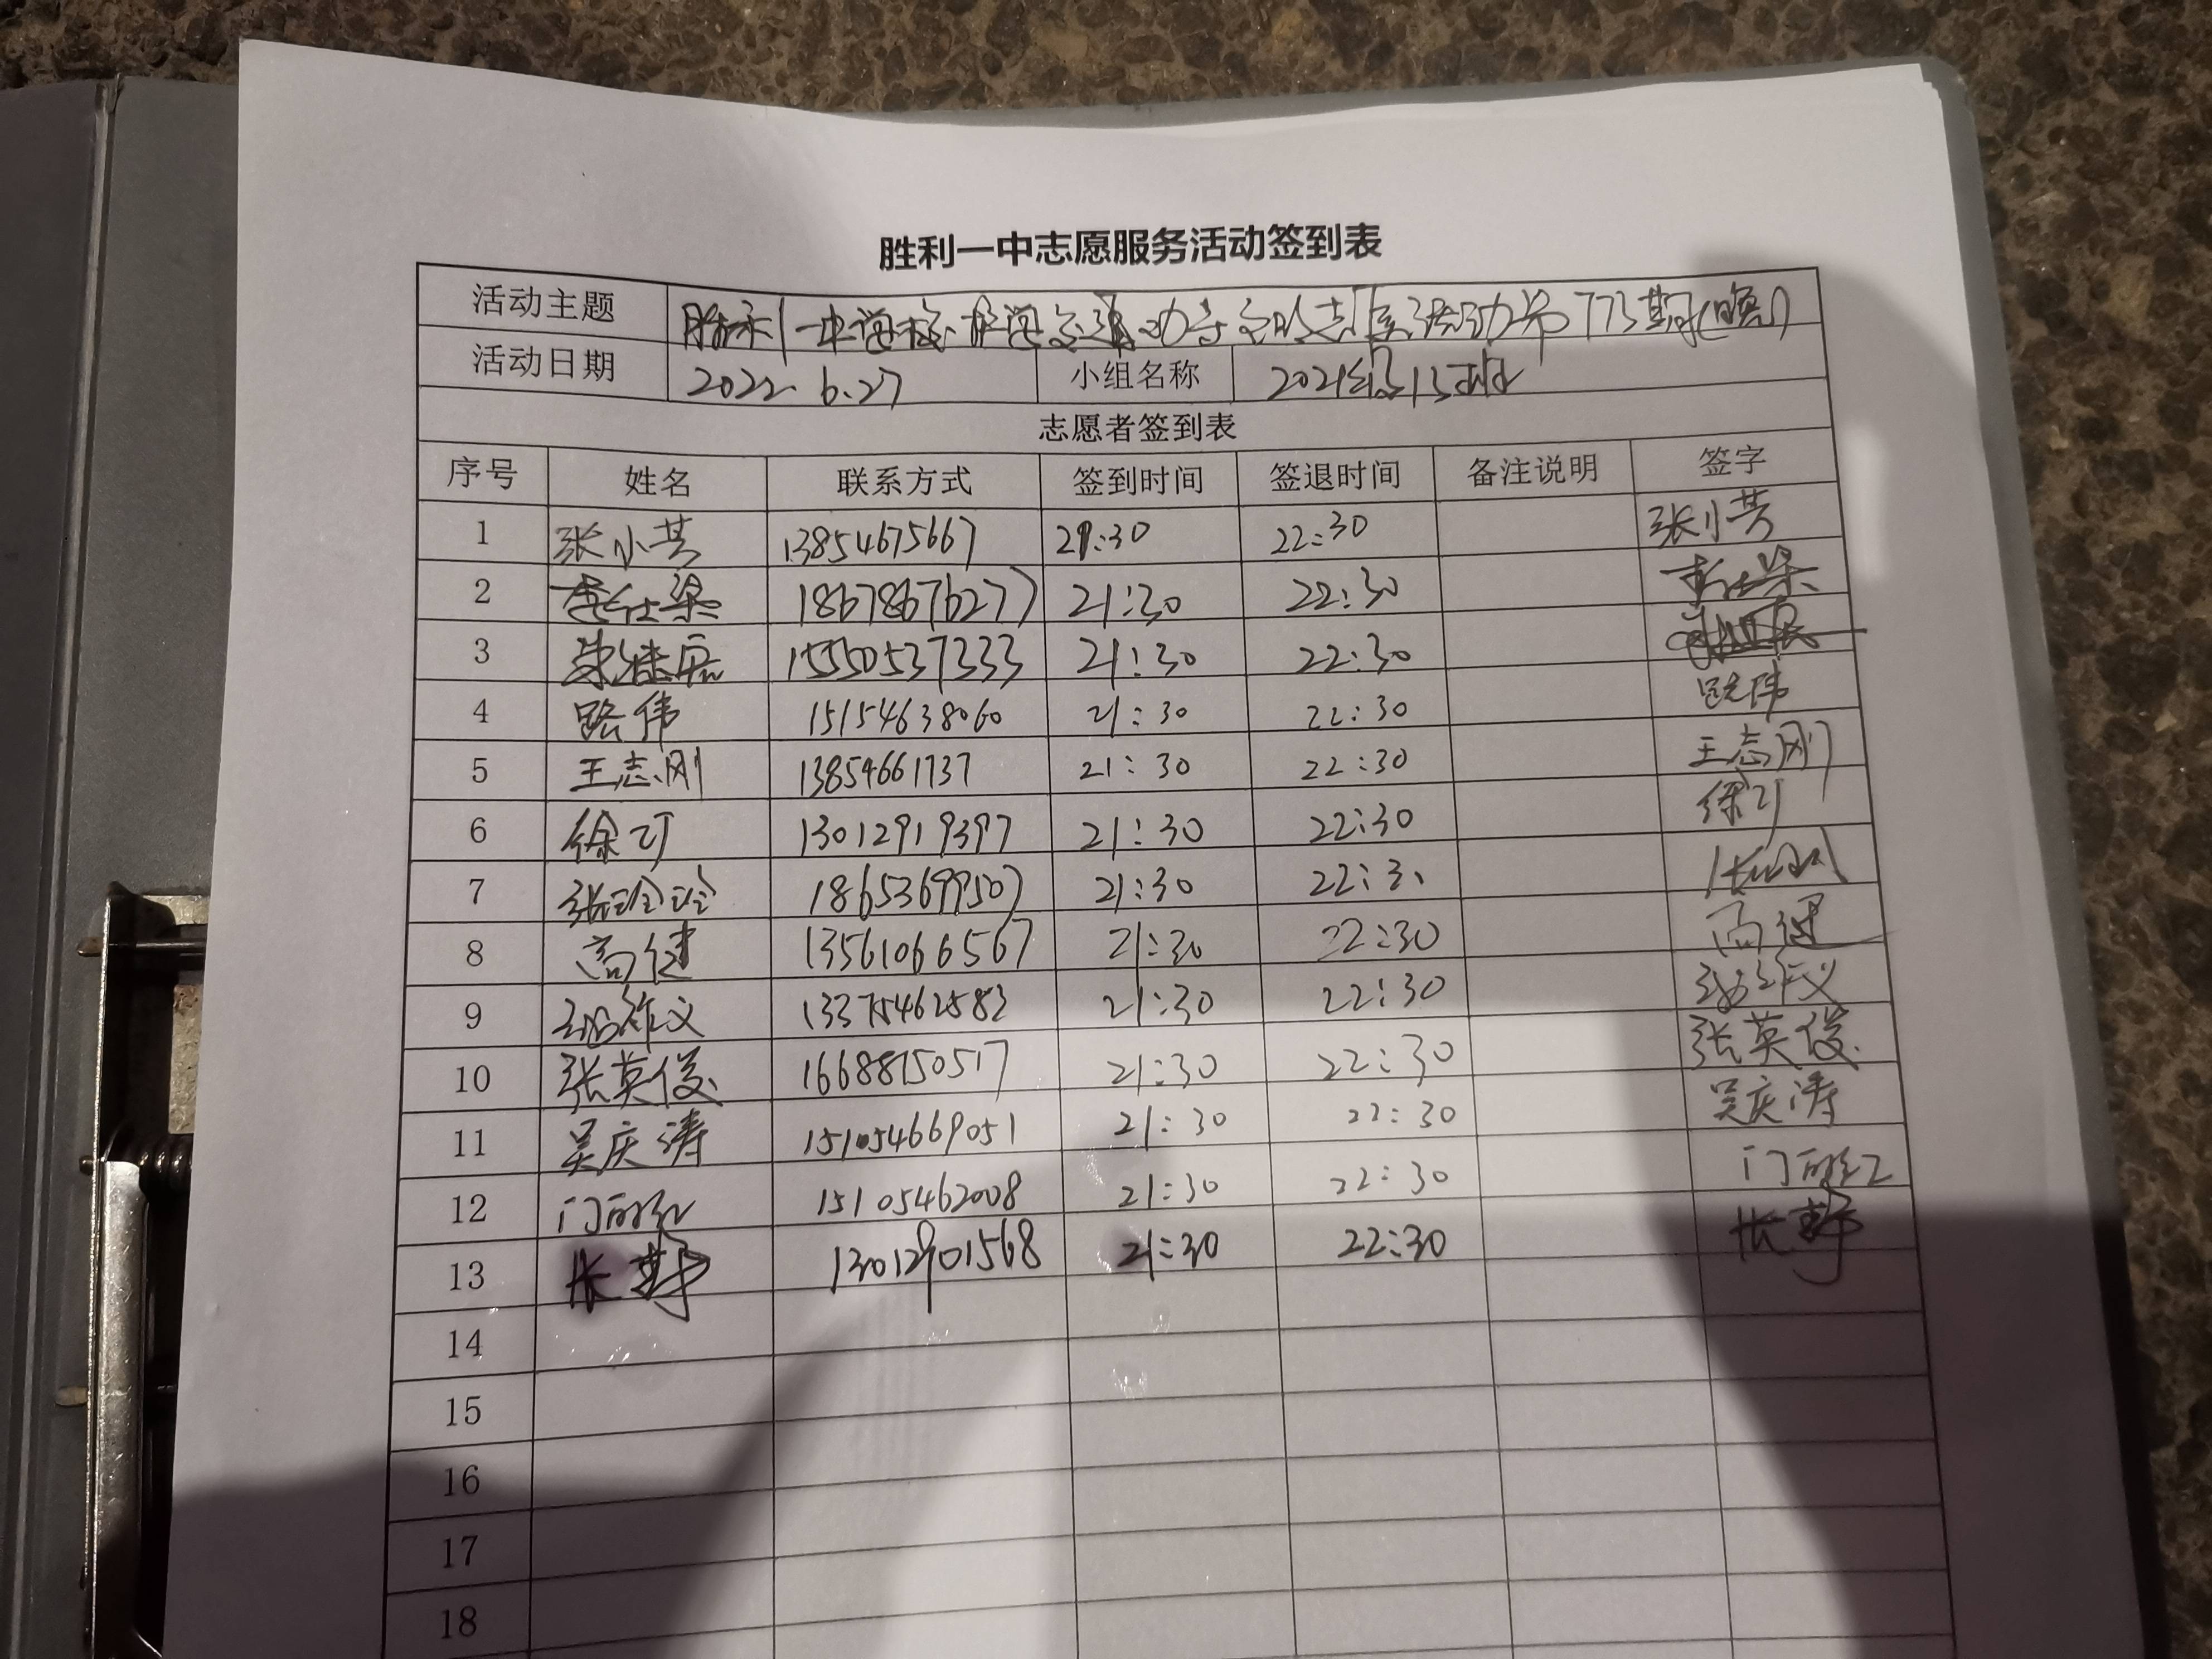 胜利一中志愿服务活动签到表
活动主题 胜利一中 志愿活动第773期(晚)
活动日期 2022.6.27 小组名称 2021级13班
志愿者签到表
序号 姓名 联系方式 签到时间 签退时间 备注说明 签字
1 张小芸 13854675667 21:30 22:30 张小芸
2 18678676277 21:30 22:30
3 15550537333 21:30 22:30
4 路伟 15154638060 21:30 22:30 路伟
5 王志刚 13854661737 21:30 22:30 王志刚
6 徐 13012919397 21:30 22:30 徐
7 张玲玲 18653699507 21:30 22:30
8 高健 13561066567 21:30 22:30 高健
9 13375462583 21:30 22:30
10 张英俊 16688150517 21:30 22:30 张英俊
11 吴庆涛 151054669051 21:30 22:30 吴庆涛
12 门丽红 15105462008 21:30 22:30 门丽红
13 张 13012901568 21:30 22:30 张
14
15
16
17
18